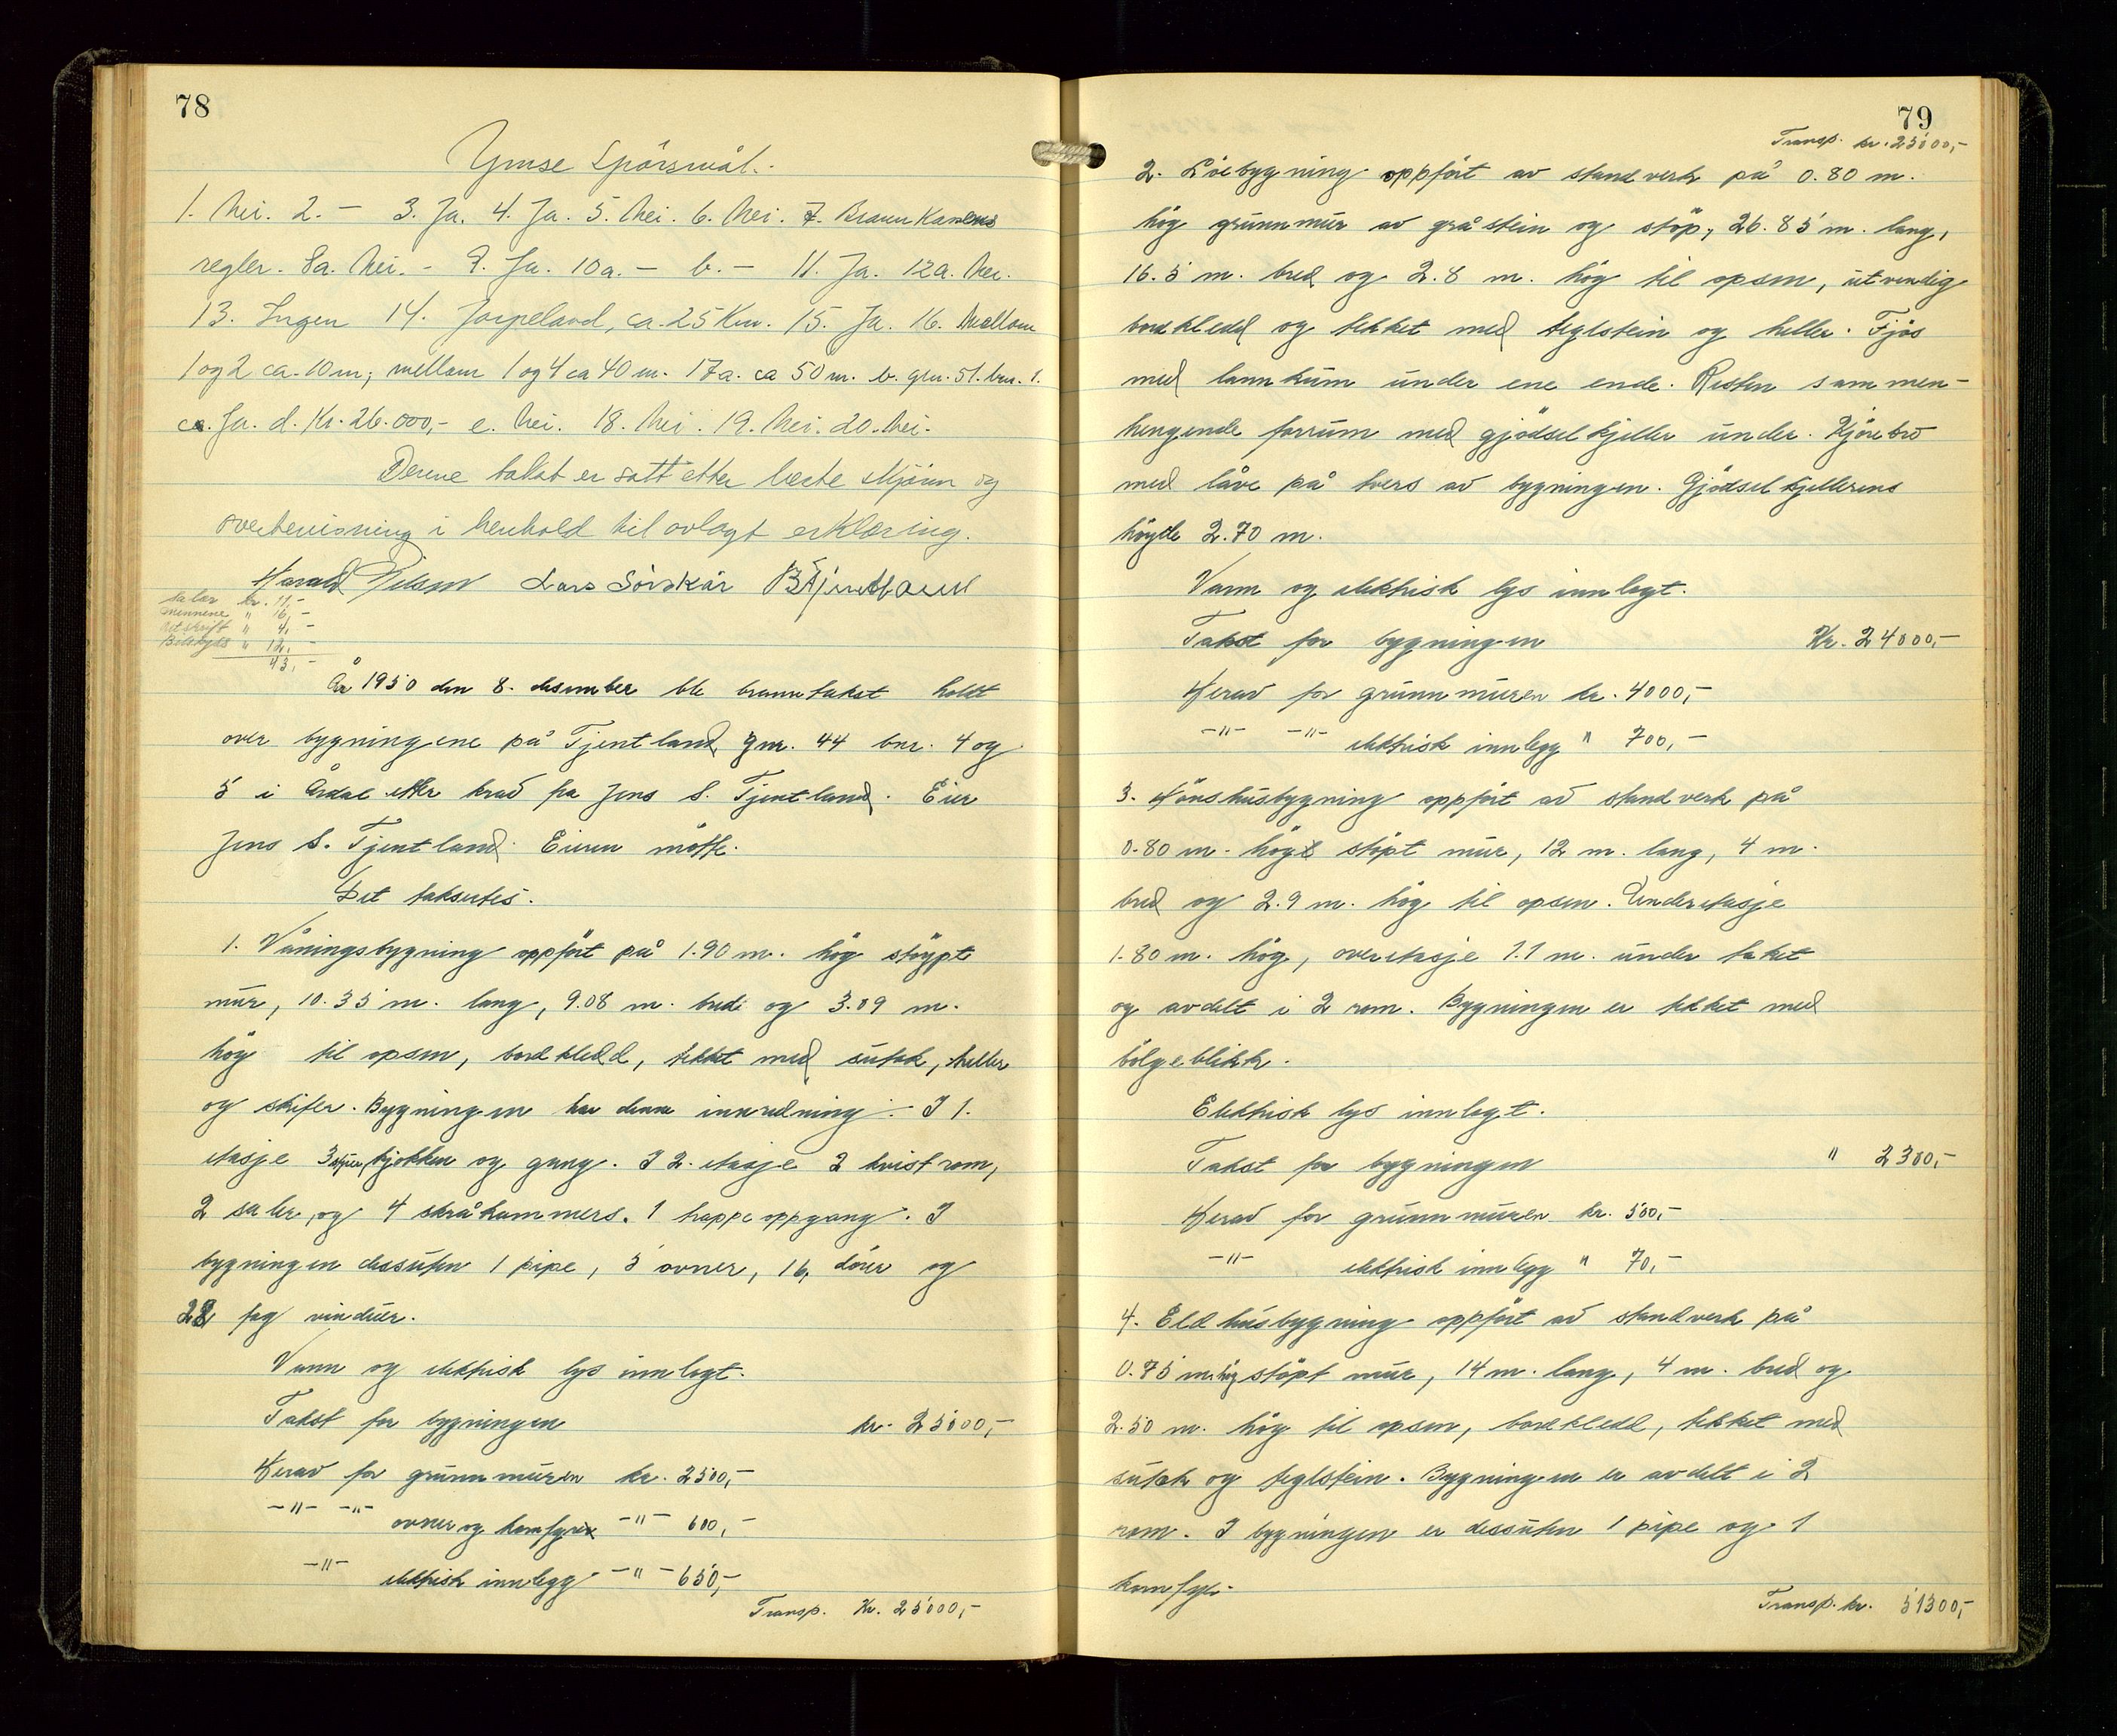 78
Ymse Spörsmål.
1. Nei. 2. – 3. Ja. 4. Ja. 5. Nei. 6. Nei. 7. Brannkassens
regler. 8a. Nei. - 9. Ja. 10a. – b. – 11. Ja. 12a. Nei.
13. Ingen 14. Jørpeland, ca. 25 Km. 15. Ja. 16. Mellom
1 og 2 ca. 10 m; mellom 1 og 4 ca 40 m. 17a. ca 50 m. b. gnr. 51. bnr. 1.
c. Ja. d. Kr. 26.000,- e. Nei. 18. Nei. 19. Nei. 20. Nei.
Denne takst er satt etter beste skjönn og
overbevisning i henhold til avlagt erklæring.
Harald Nilsen Lars Sörskår B Tjentland
kr. 11,-
mennene " 16,-
utskrift " 4,-
Bilskyss " 12,-
43,-
År 1950 den 8. desember ble branntakst holdt
over bygningene på Tjentland gnr. 44 bnr. 4 og
5 i Årdal etter krav fra Jens S. Tjentland. Eier
Jens S. Tjentland. Eieren mötte.
Det taksertes.
1. Våningsbygning oppfört på 1.90 m. hög stöypt
mur, 10.35 m. lang, 9.08 m. bred og 3.09 m.
hög til opsen, bordkledd, tekket med sutak, heller
og skifer. Bygningen har denne innredning:- I 1.
etasje 3 stuer, kjökken og gang. I 2. etasje 2 kvistrom,
2 saler, og 4 skråkammers. 1 trappeoppgang. I
bygningen dessuten 1 pipe, 5 ovner, 16 dörer og
22 fag vinduer.
Vann og elektrisk lys innlagt.
Takst for bygningen kr. 25000,-
Herav for grunnmuren kr. 2500,-
-"- -"- ovner og komfyrer -"- 600,-
-"- elektrisk innlegg -"- 650,-
Transp. Kr. 25000,-
79
Transp. kr. 25000,-
2. Löebygning oppfört av standverk på 0.80 m.
hög grunnmur av gråstein og stöp, 26.85 m. lang,
16.5 m. bred og 2.8 m. hög til opsen, utvendig
bordkledd og tekket med teglstein og heller. Fjös
med lannkum under ene ende. Resten sammen-
hengende forrum med gjödselkjeller under. Kjörebro
med låve på tvers av bygningen. Gjödselkjellerens
högde 2.70 m.
Vann og elektrisk lys innlagt.
Takst for bygningen Kr. 24000,-
Herav for grunnmuren kr. 4000,-
-"- -"- elektrisk innlegg " 700,-
3. Hönshusbygning oppfört av standverk på
0.80 m. hög stöpt mur, 12 m. lang, 4 m.
bred og 2.9 m. hög til opsen. Underetasje
1.80 m. hög, overetasje 1.1 m. under taket
og avdelt i 2 rom. Bygningen er tekket med
bölgeblikk.
Elektrisk lys innlagt.
Takst for bygningen " 2300,-
Herav for grunnmuren kr. 500,-
-"- elektrisk innlegg " 70,-
4. Eldhusbygning oppfört av standverk på
0.75 m. hög stöpt mur, 14 m. lang, 4 m. bred og
2.50 m. hög til opsen, bordkledd, tekket med
sutak og teglstein. Bygningen er avdelt i 2
rom. I bygningen er dessuten 1 pipe og 1
komfyr.
Transp. kr. 51300,-